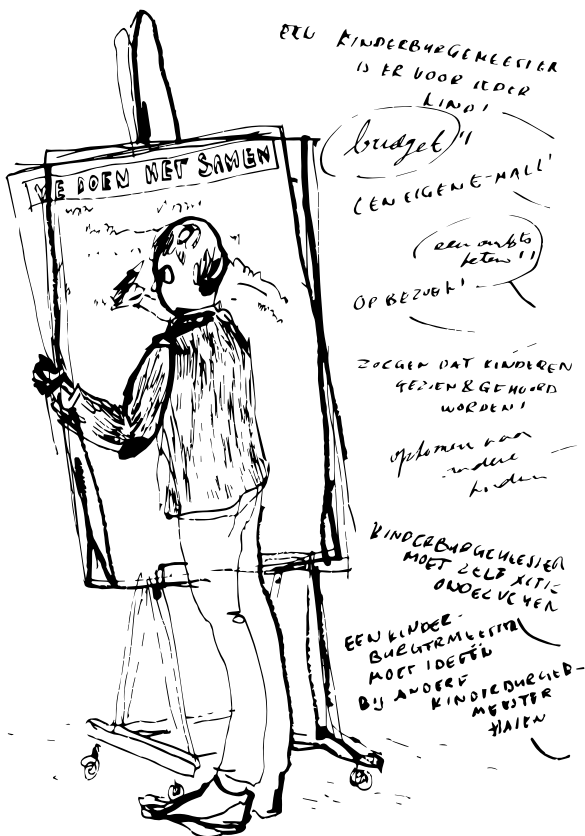 WE DOEN HET SAMEN
EEN KINDERBURGEMEESTER
IS ER VOOR IEDER
KIND!
budget!!
EEN EIGEN E-MAIL!
een ambts
keten!!
OP BEZOEK!
ZORGEN DAT KINDEREN
GEZIEN & GEHOORD
WORDEN!
opkomen voor
andere
KINDERBURGEMEESTER
MOET ZELF
EEN KINDER-
BURGERMEESTER
MOET IDEEËN
BIJ ANDERE
KINDERBURGER-
MEESTER
HALEN